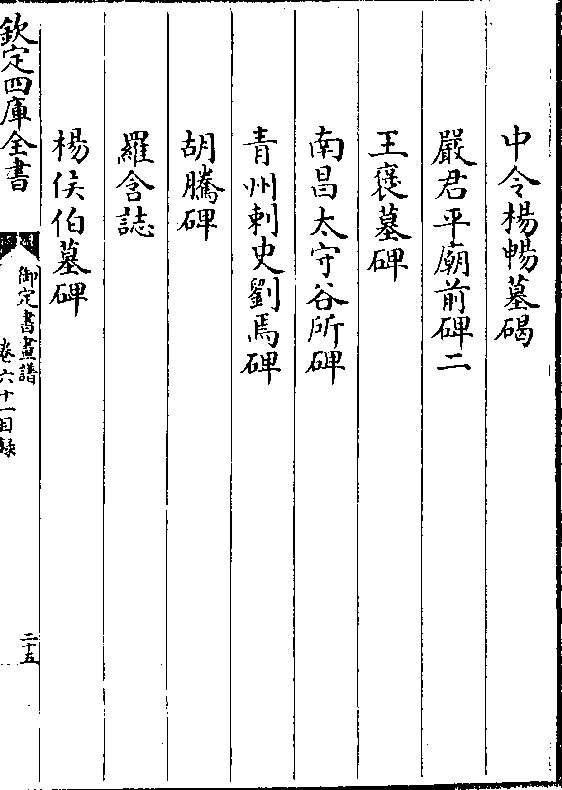 中令楊暢墓碣
嚴君平廟前碑二
王襃墓碑
南昌太守谷所碑
青州刺史劉焉碑
胡騰碑
羅含誌
楊侯伯墓碑
欽定四庫全書
御定書畫譜
卷六十一目錄
二十五